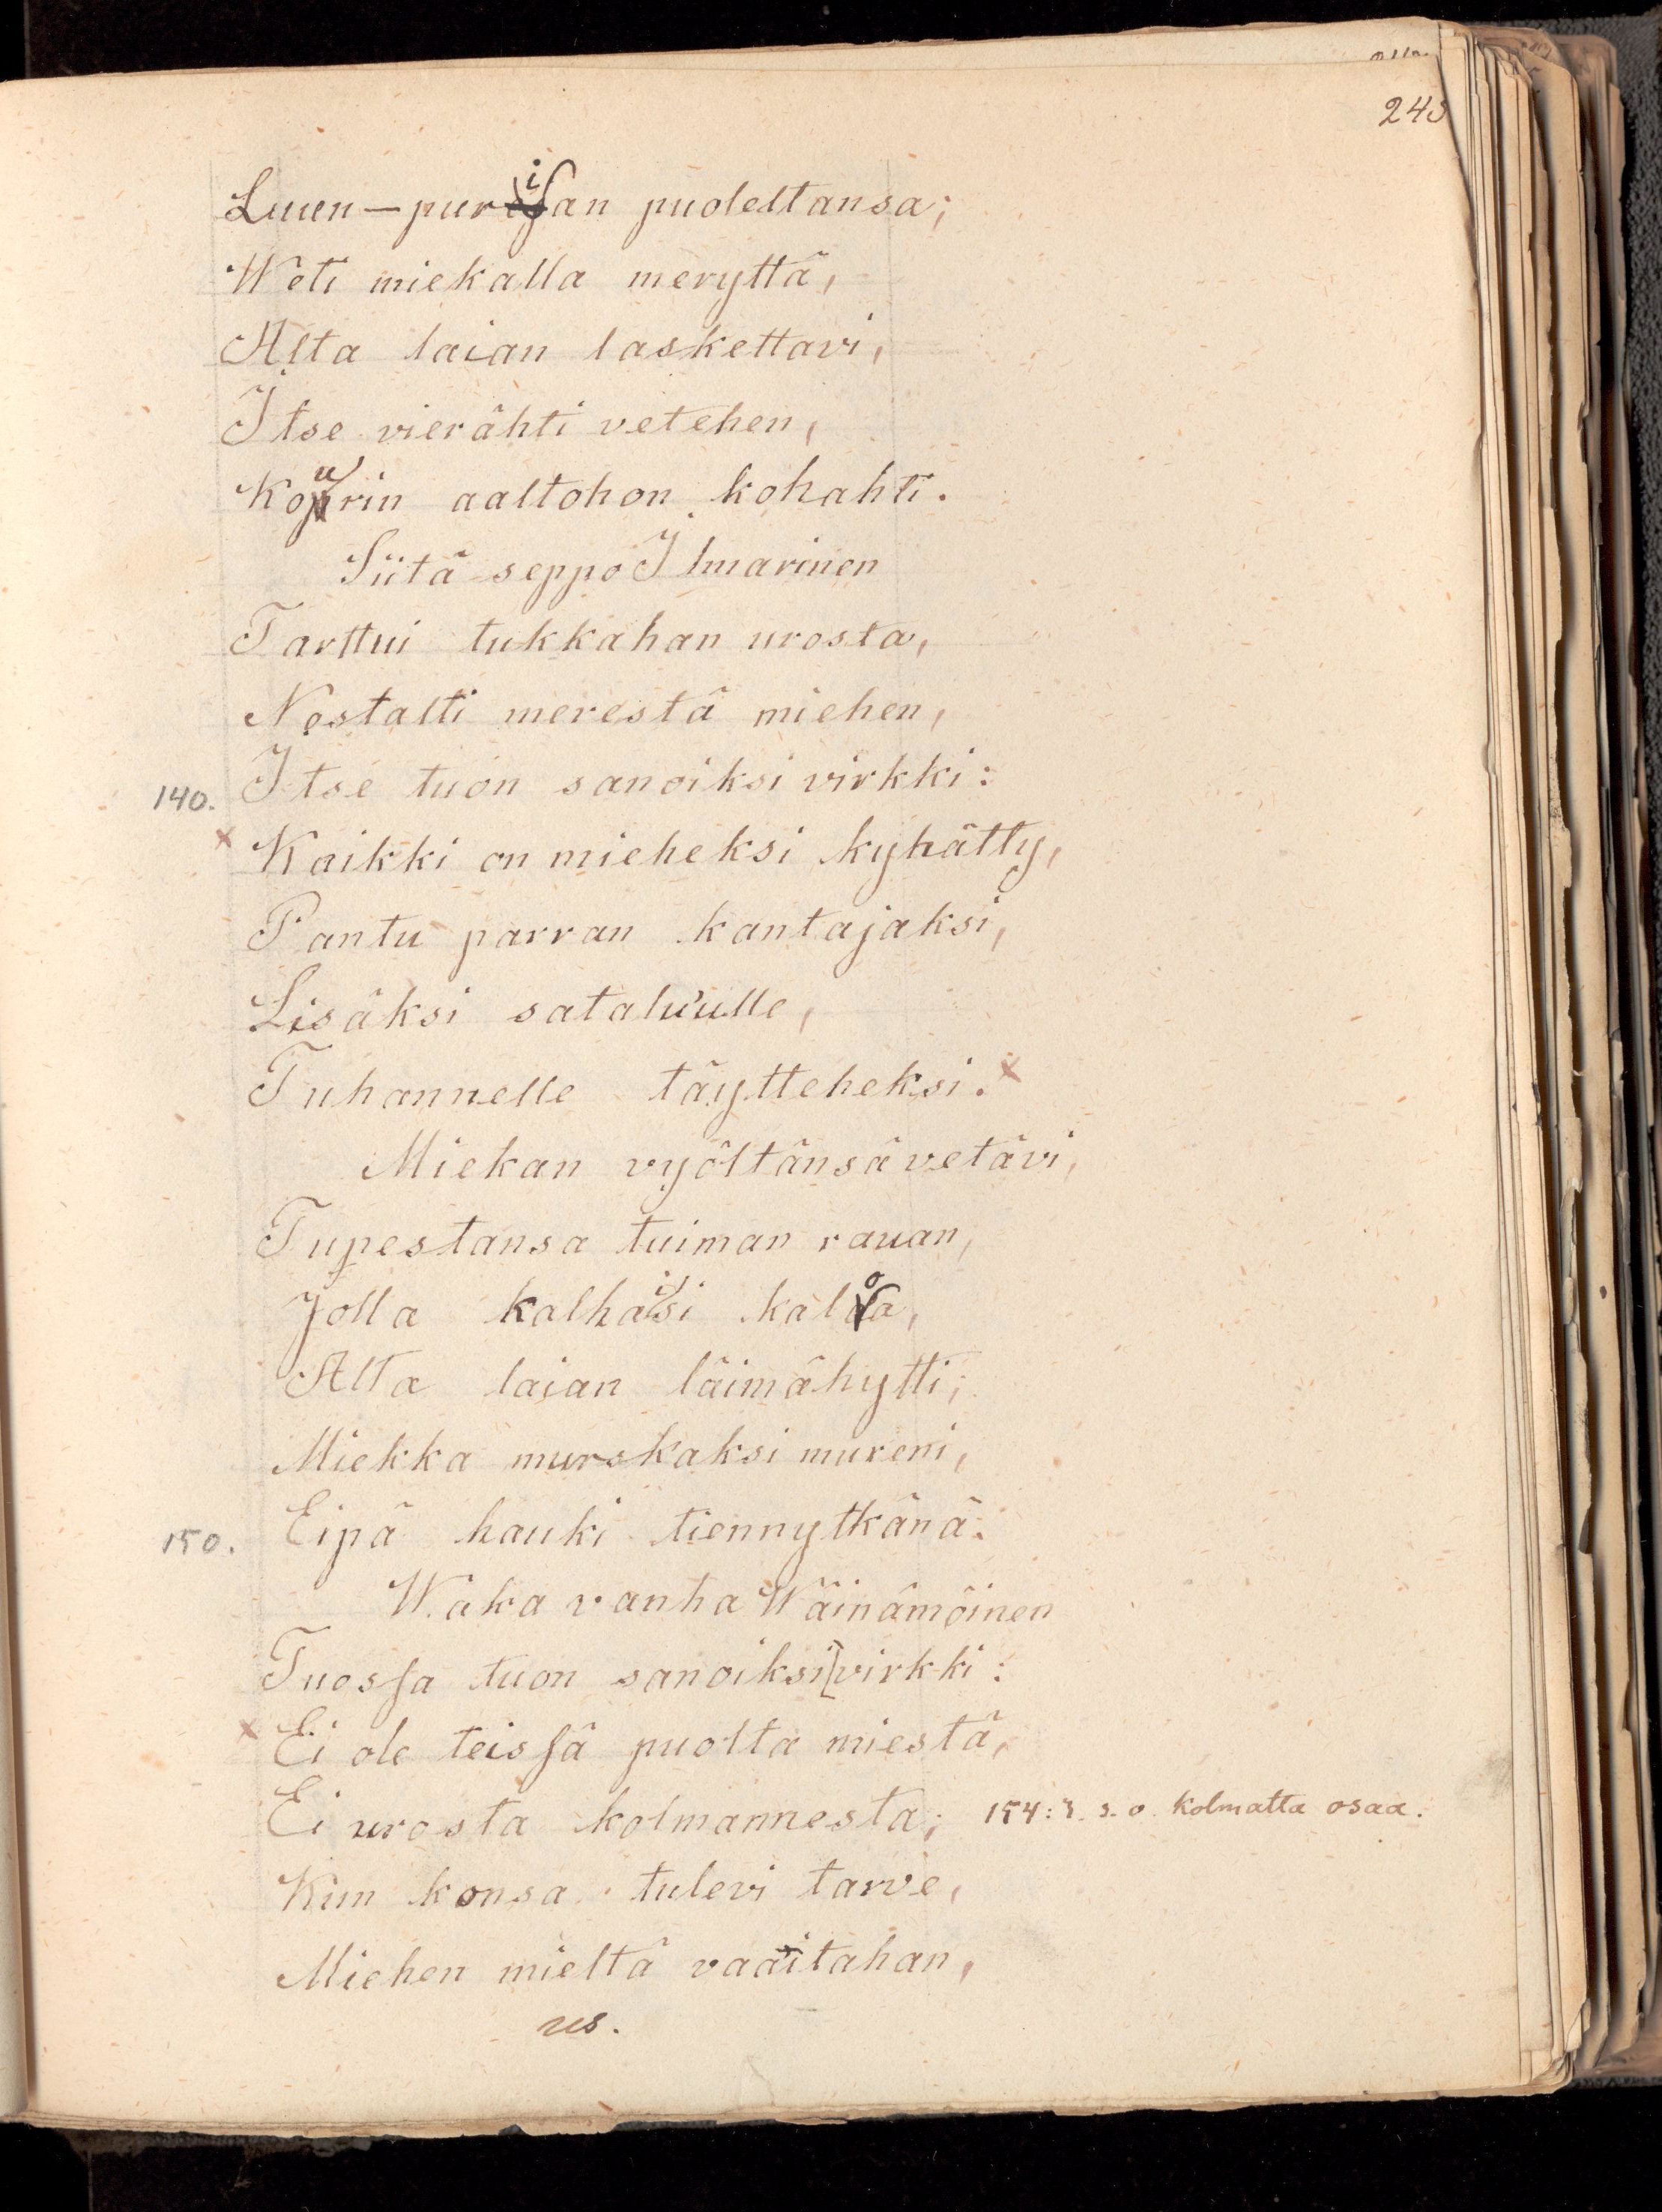 243
Luun-purisan puoleltansa;
Weti miekalla meryttä,
Alta laian laskettavi,
Itse vierähti vetehen,
Kourin aaltohon kohahti.
Siitä seppo Ilmarinen
Tarttui tukkahan urosta,
Nostalti merestä miehen,
140. Itse tuon sanoiksi virkki:
× Kaikki on mieheksi kyhätty,
Pantu parran kantajaksi,
Lisäksi satalu'ulle,
Tuhannelle täytteheksi. ×
Miekan vyöltänsä vetävi,
Tupestansa tuiman rauan,
Jolla kalhaisi kaloa,
Alta laian läimähytti;
Miekka murskaksi mureni,
150. Eipä hauki tiennytkänä.
Waka vanha Wäinämöinen
Tuossa tuon sanoiksi virkki:
× Ei ole teissä puolta miestä,
Ei urosta kolmannesta; 154: r. s. o. kolmatta osaa.
Kun konsa tulevi tarve,
Miehen mieltä vaaitahan,
us.